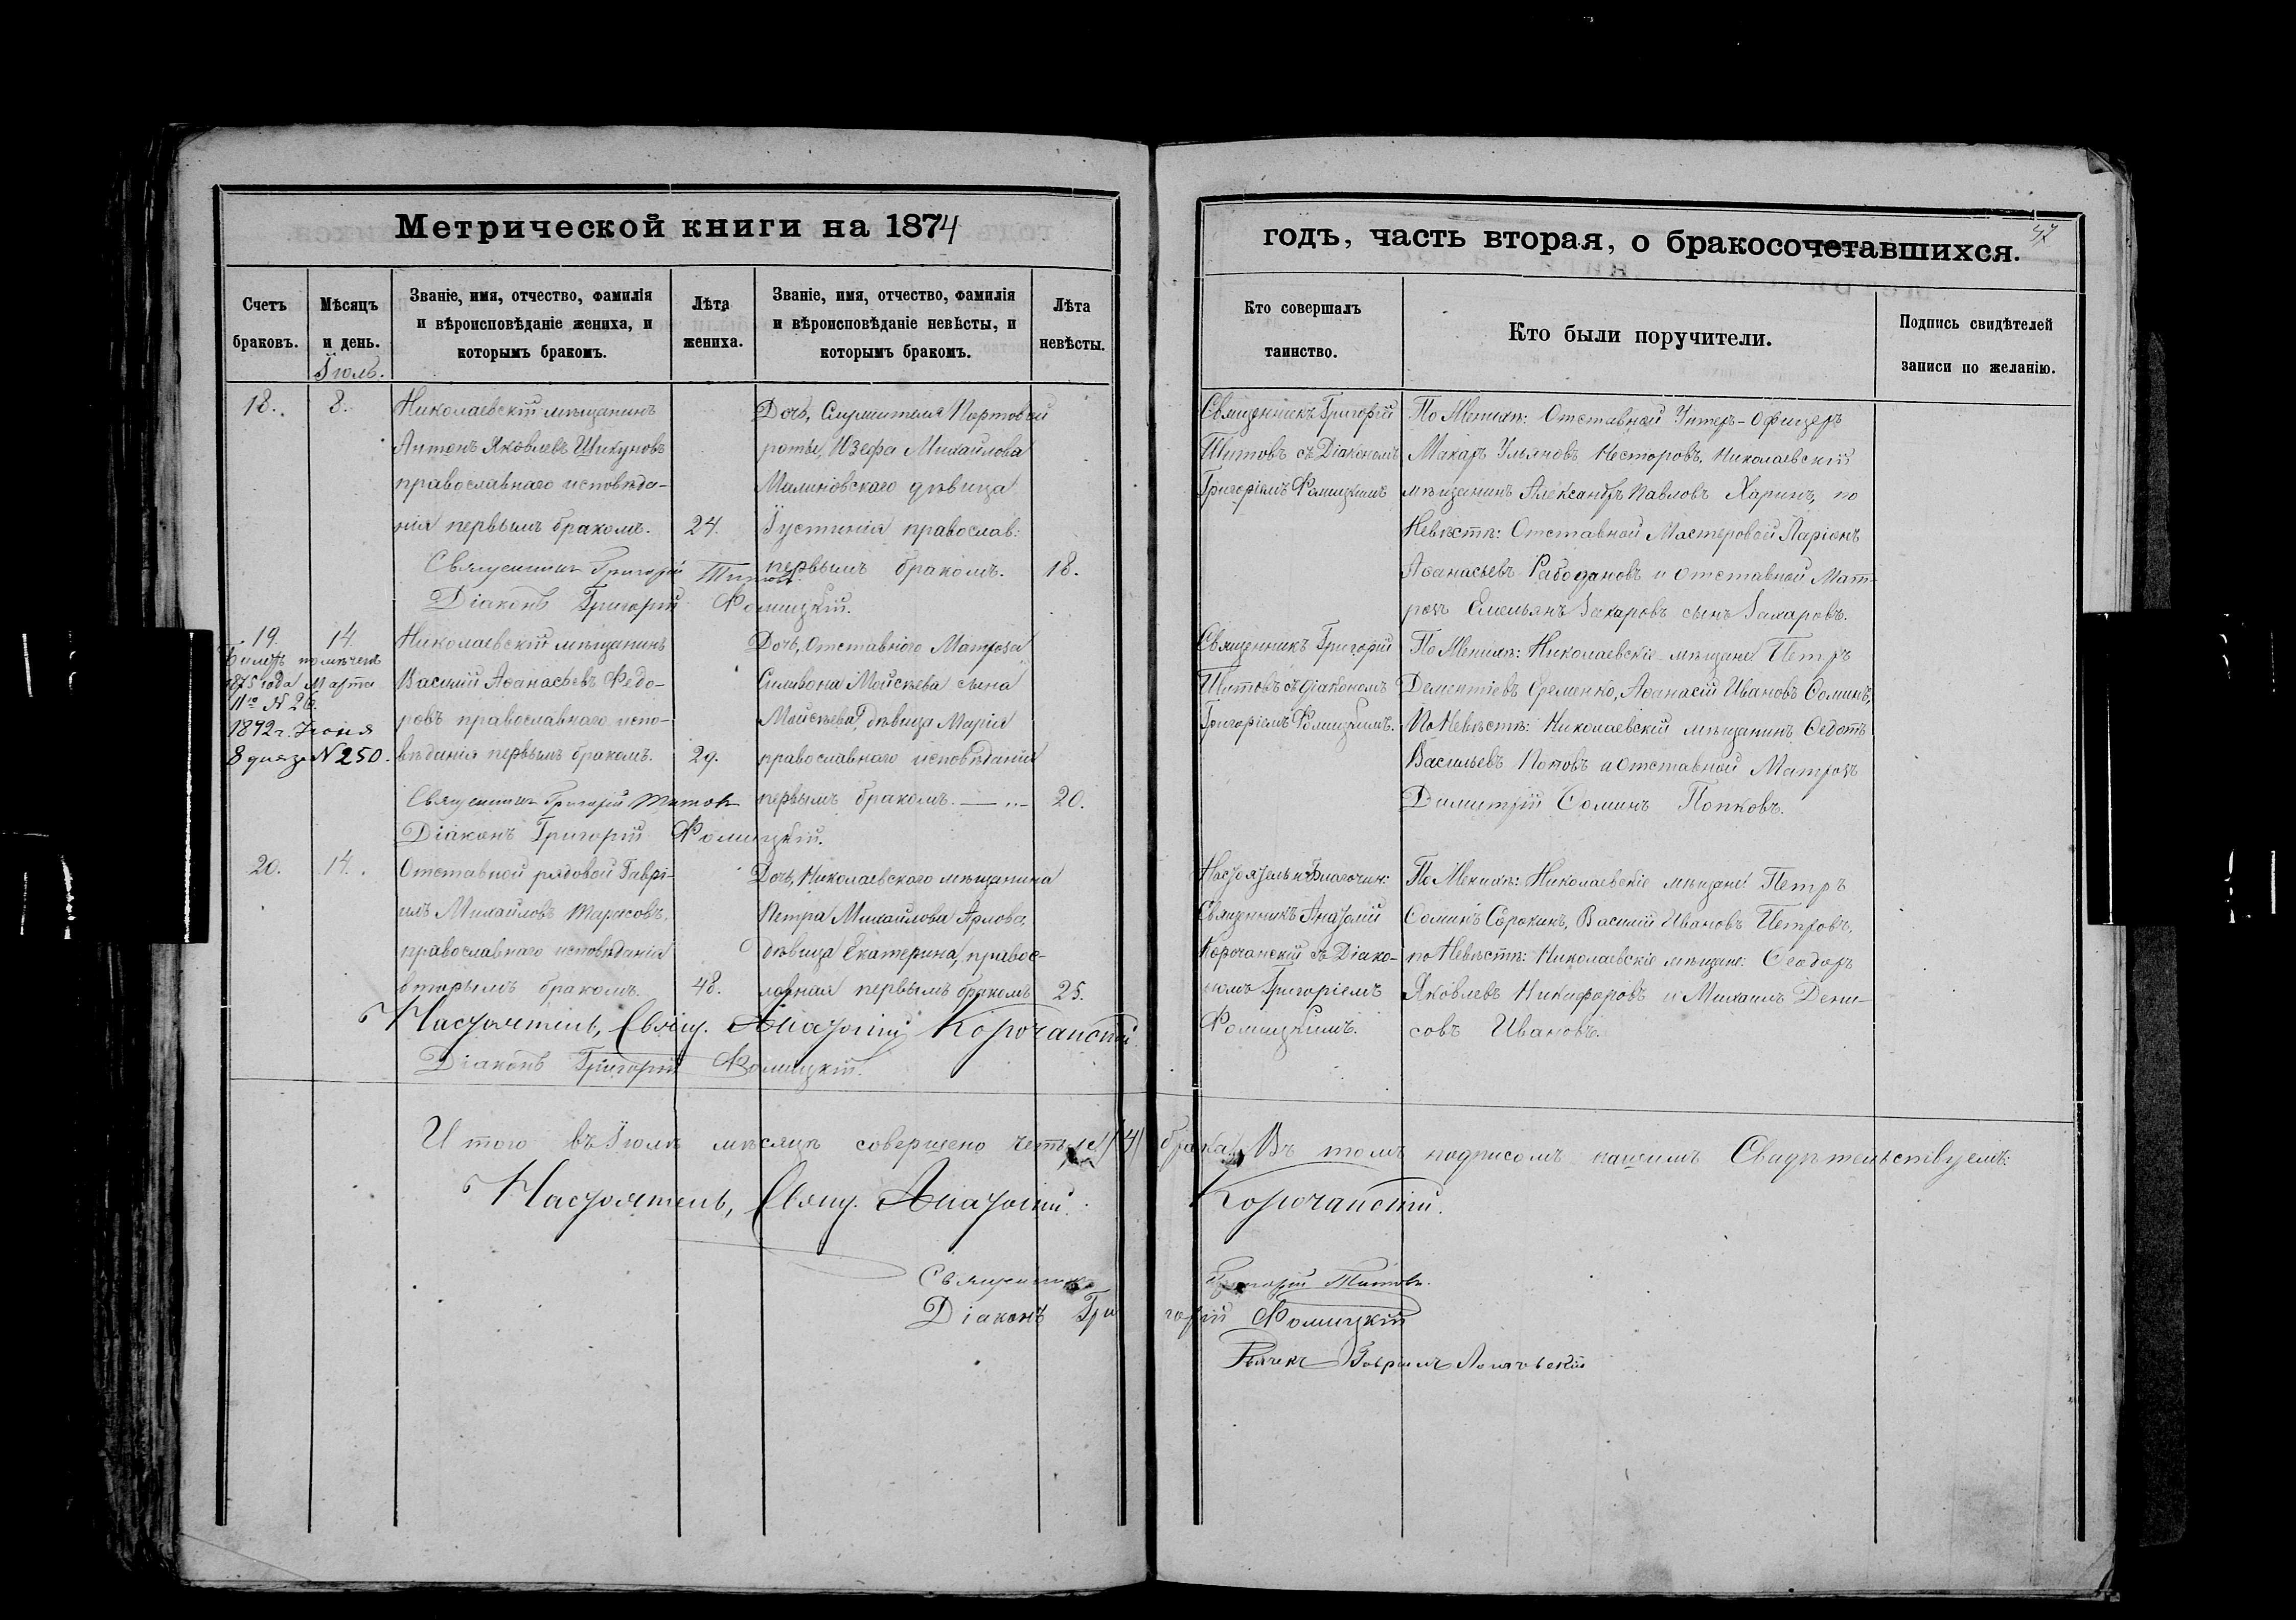 Метрической книги на 1874
Счетъ браковъ.
Мѣсяцъ и день.
Званіе, имя, отчество, фамилія и вѣроисповѣданіе жениха, и которымъ бракомъ.
Лѣта жениха.
Званіе, имя, отчество, фамилія и вѣроисповѣданіе невѣсты, и которымъ бракомъ.
Лѣта невѣсты.
Іюль.
18. 8. Николаевскій мѣщанинъ
Антонъ Яковлевъ Шикуновъ
православнаго исповѣда-
нія первымъ бракомъ. 24.
Дочь, Служителя Портовой
роты, Юзефа Михайлова
Малиновскаго дѣвица
Іустинія православ:
первымъ бракомъ. 18.
Священникъ Григорій Титовъ
Діаконъ Григорій Фомицкій.
19. 14. Николаевскій мѣщанинъ
Билетъ помѣченъ
1875 года Марта
11го N 26.
1892 г. Іюня
8 дня за N 250.
Василій Аѳанасьевъ Федо-
ровъ православнаго испо-
вѣданія первымъ бракомъ. 29.
Дочь, Отставнаго Матроза
Силивона Моисѣева сына
Моисѣева, дѣвица Марія
православнаго исповѣданія
первымъ бракомъ. 20.
Священникъ Григорій Титовъ
Діаконъ Григорій Фомицкій.
20. 14. Отставной рядовой Гаврі-
илъ Михайловъ Тарасовъ,
православнаго исповѣданія
вторымъ бракомъ. 48.
Дочь, Николаевскаго мѣщанина
Петра Михайлова Арлова,
дѣвица Екатерина, правос-
лавная первымъ бракомъ 25.
Настоятель, Свящ. Анатолій Корочанскій
Діаконъ Григорій Фомицкій.
годъ, часть вторая, о бракосочетавшихся.
47
Кто совершалъ таинство.
Кто были поручители.
Подпись свидѣтелей записи по желанію.
Священникъ Григорій
Титовъ съ Діакономъ
Григоріемъ Фомицкимъ
По Женихѣ: Отставной Унтеръ-Офицеръ
Макаръ Ульяновъ Несторовъ, Николаевскій
мѣщанинъ Александръ Павловъ Харинъ, по
Невѣстѣ: Отставной Мастеровой Ларіонъ
Аѳанасьевъ и Отставной Мат-
розъ Емельянъ Захаровъ сынъ Захаровъ.
Священникъ Григорій
Титовъ съ Діакономъ
Григоріемъ Фомицкимъ.
По Женихѣ: Николаевскіе мѣщане Петръ
Дементіевъ Еременко, Аѳанасій Ивановъ Ѳоминъ,
По Невѣстѣ: Николаевскій мѣщанинъ Ѳедотъ
Васильевъ Поповъ и Отставной Матрозъ
Димитрій Ѳоминъ Попковъ.
Настоятель и Благочин:
Священникъ Анатолій
Корочанскій съ Діако-
номъ Григоріемъ
Фомицкимъ.
По Женихѣ: Николаевскіе мѣщане: Петръ
Ѳоминъ Сорокинъ, Василій Ивановъ Петровъ,
по Невѣстѣ: Николаевскіе мѣщане: Ѳеодоръ
Яковлевъ Никифоровъ и Михаилъ Дени-
совъ Ивановъ.
Итого въ Іюлѣ мѣсяцѣ совершено четыре (4) брака. Въ томъ подписомъ нашимъ Свидѣтельствуемъ:
Настоятель, Свящ. Анатолій Корочанскій.
Священникъ Григорій Титовъ.
Діаконъ Григорій Фомицкій
Гавріилъ